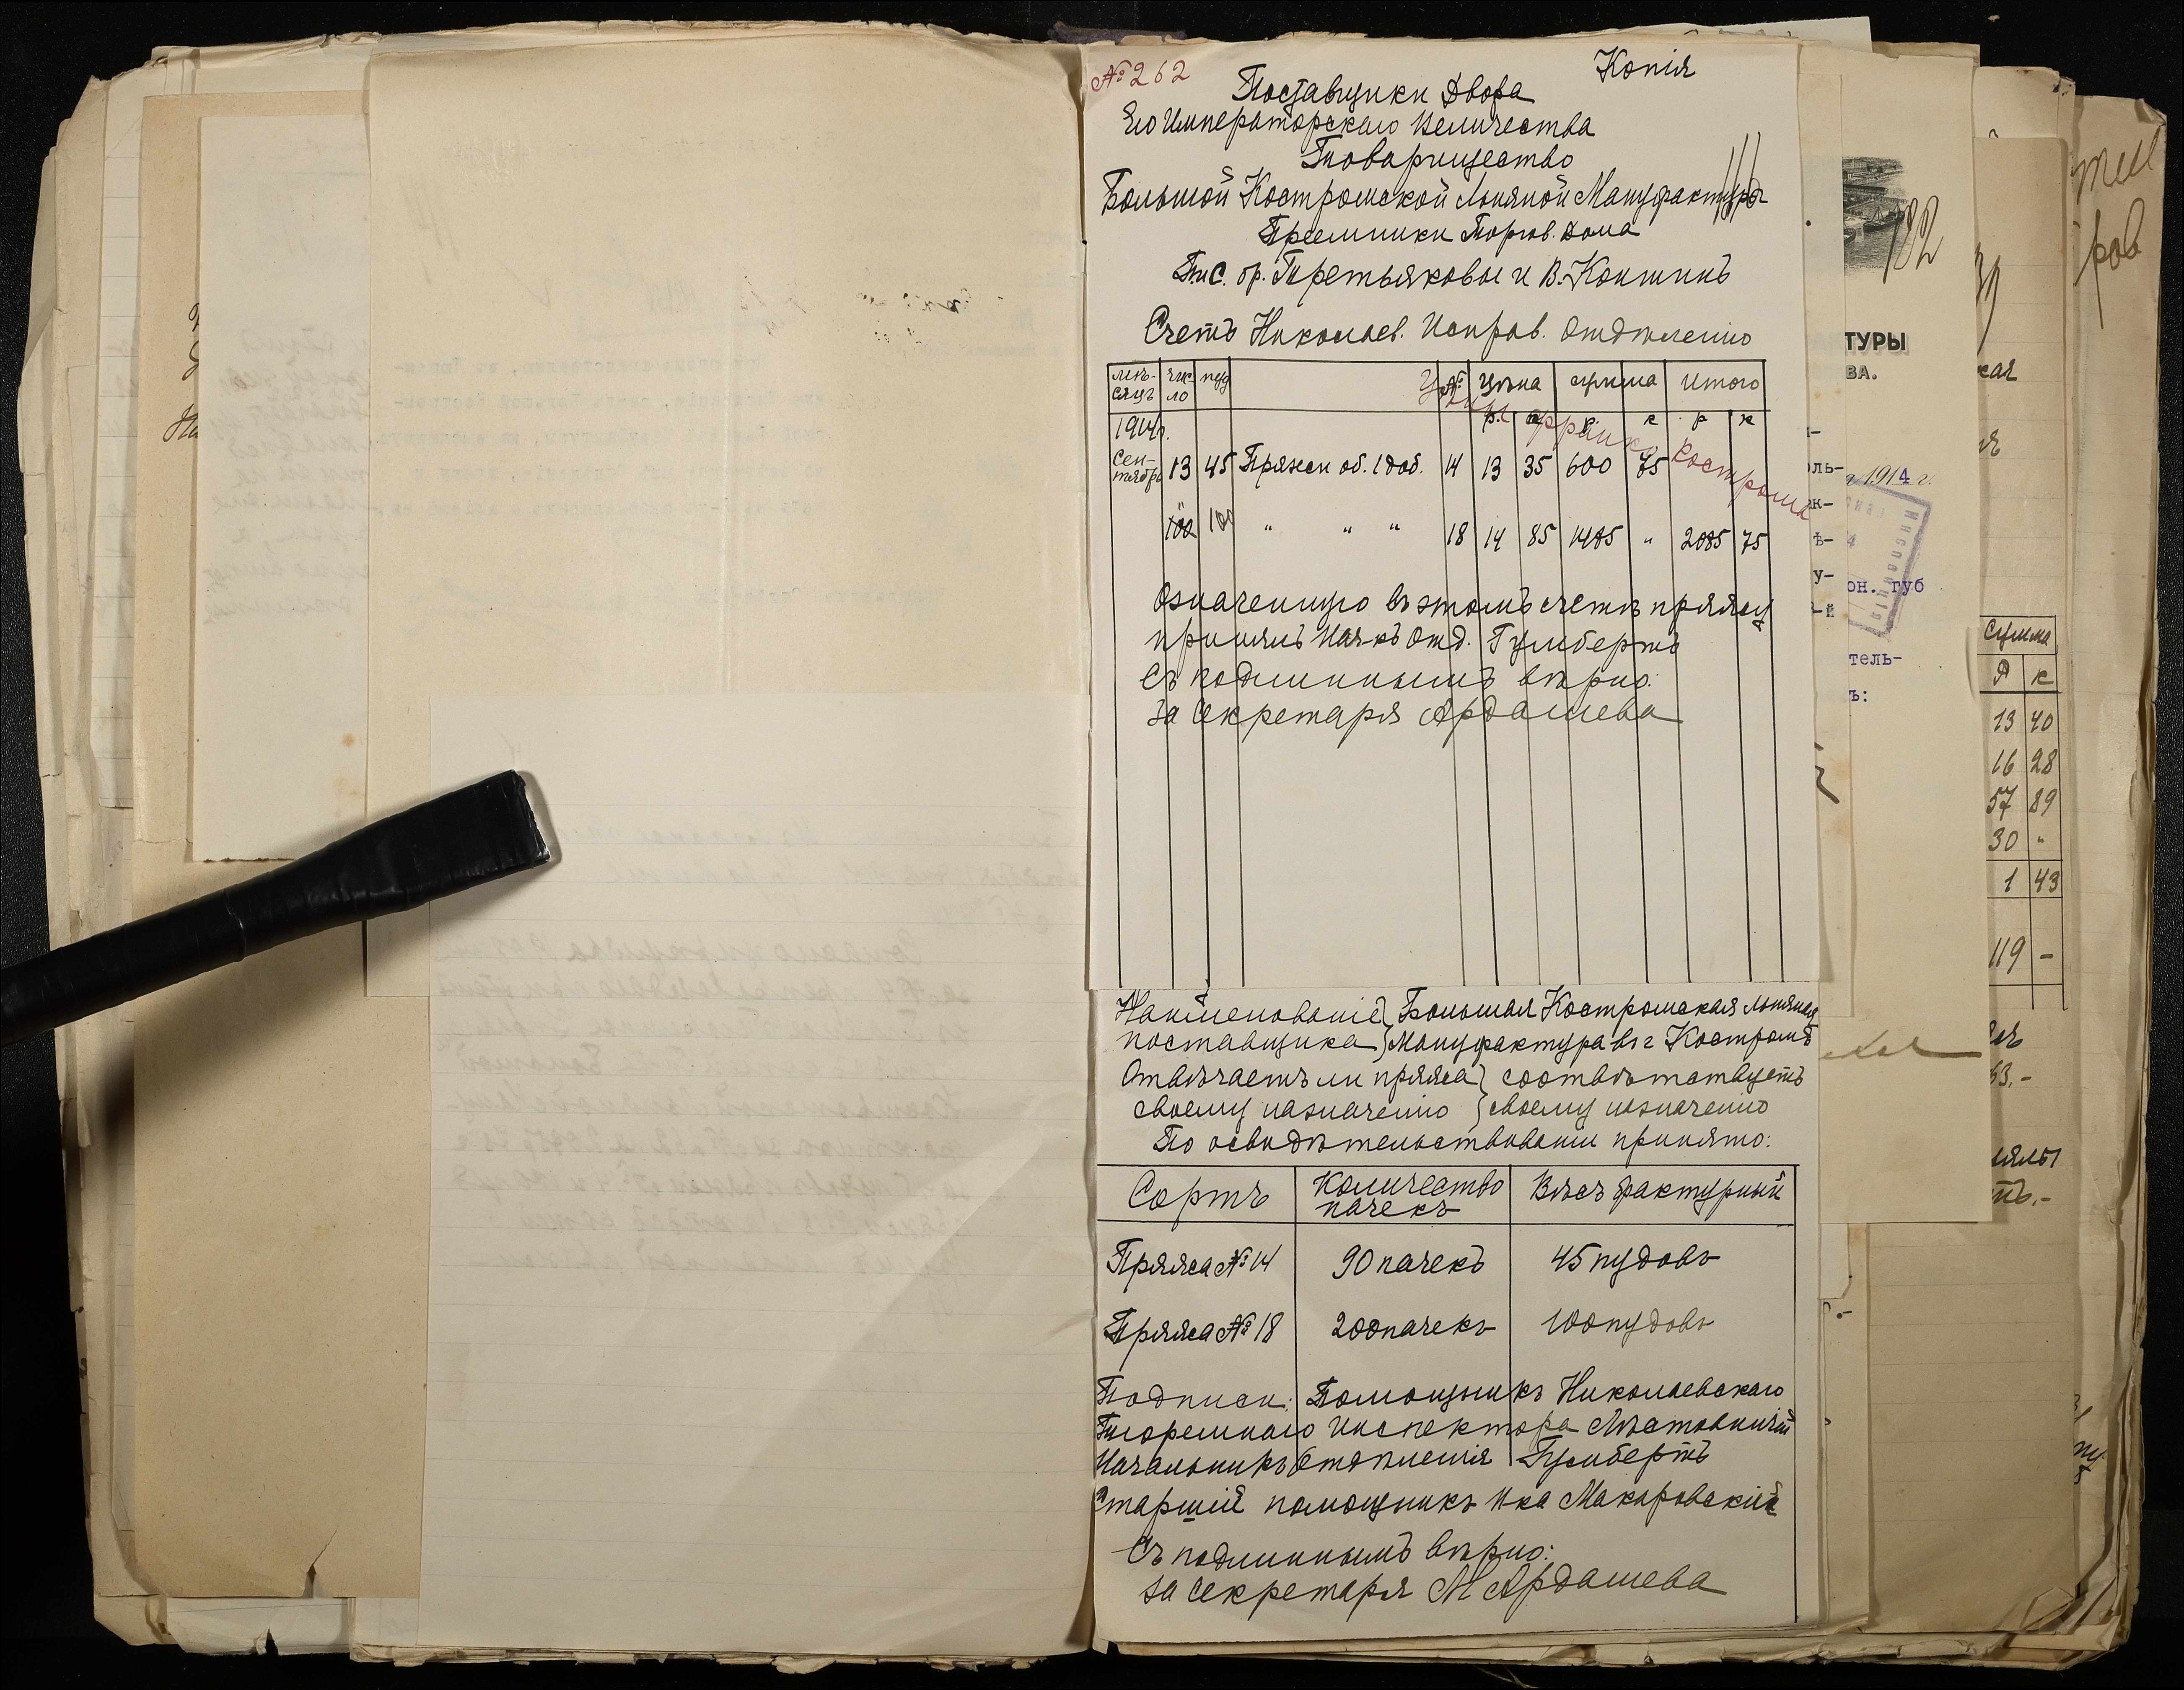 № 262
Копія
Поставщики Двора
Его Императорскаго Величества
Товарищество
Большой Костромской Льняной Мануфактуры
Преемники Торгов. Дома
П. и С. бр. Третьяковы и В. Коншинъ
Счетъ Николаев. Исправ. Отдѣленію
мѣ- чис- пуд № цѣна сумма итого
сяцъ ло
р. к р. к р к
Цѣны франко Кострома
1914г.
Сен- 13 45 Пряжи об. 1 доб. 14 13 35 600 75
тября
100 " " " 18 14 85 1485 " 2085 75
Означенную въ этомъ счетѣ пряжу
принялъ Нач-къ Отд. Гумбертъ
Съ подлиннымъ вѣрно:
За Секретаря Ардашева
Наименованіе } Большая Костромская Льняная
поставщика } Мануфактура въ г Костромѣ
Отвѣчаетъ ли пряжа } соотвѣтствуетъ
своему назначенію } своему назначенію
По освидѣтельствованіи принято:
Сортъ Количество Вѣсъ фактурный
пачекъ
Пряжа № 14 90 пачекъ 45 пудовъ
Пряжа № 18 200 пачекъ 100 пудовъ
Подписи: Помощникъ Николаевскаго
Тюремнаго Инспектора
Начальникъ Отдѣленія Гумбертъ
Старшій помощникъ н-ка Макаровскій
Съ подлиннымъ вѣрно:
За Секретаря М Ардашева
182
ТУРЫ
ВА.
1914 г.
он. губ
тель-
ъ:
Сумма
Р к
13 40
16 28
57 89
30 -
1 43
119 -
53.-
ров